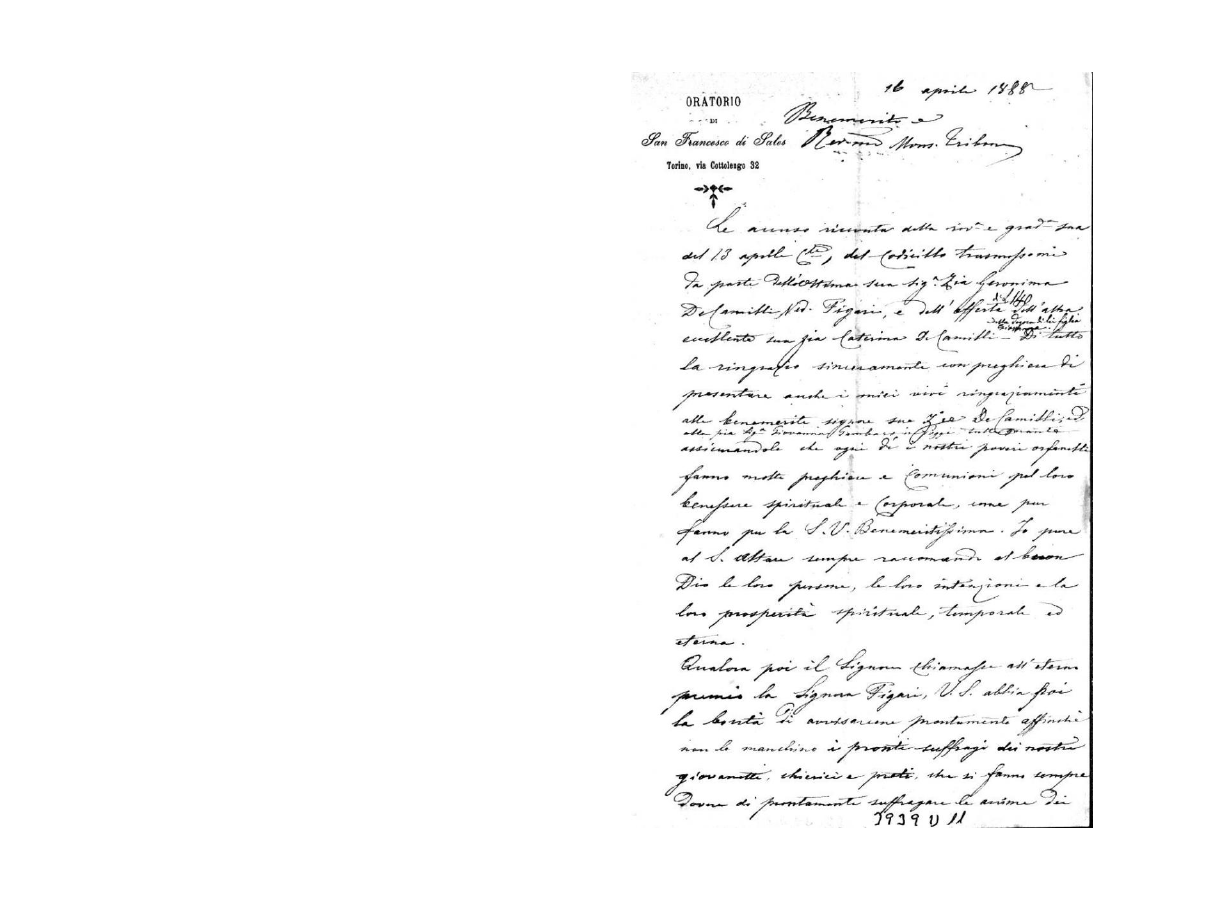 16 aprile 1888
ORATORIO
DI
San Francesco di Sales
Torino, via Cottolengo 32
Benemerito e
Rev.mo Mons. Tribone
Le accuso ricevuta della riv.a e grad.a sua
del 13 aprile c.te, del Codicillo trasmessomi
da parte dell'ottima sua sig.a Zia Geronima
DeCamilli, Ved. Figari, e dell'offerta dell'altra
di £ 140
eccellente sua zia Caterina DeCamilli – Di tutto
la ringrazio sinceramente con preghiera di
presentare anche i miei vivi ringraziamenti
alle benemerite signore sue Zie DeCamilli, ed
alla pia Sig.a Giovanna Gambaro in
assicurandole che ogni dì i nostri poveri orfanelli
fanno molte preghiere e Comunioni pel loro
benessere spirituale e Corporale, come pur
fanno per la S. V. Benemeritissima. Io pure
al S. Altare sempre raccomando al buon
Dio le loro persone, le loro intenzioni e la
loro prosperità spirituale, temporale ed
eterna.
Qualora poi il Signore chiamasse all'eterno
premio la Signora Figari, V. S. abbia poi
la bontà di avvisarcene prontamente affinchè
non le manchino i pronti suffragi dei nostri
giovanetti, chierici e preti, che si fanno sempre
dovere di prontamente suffragare le anime dei
3939 V 11